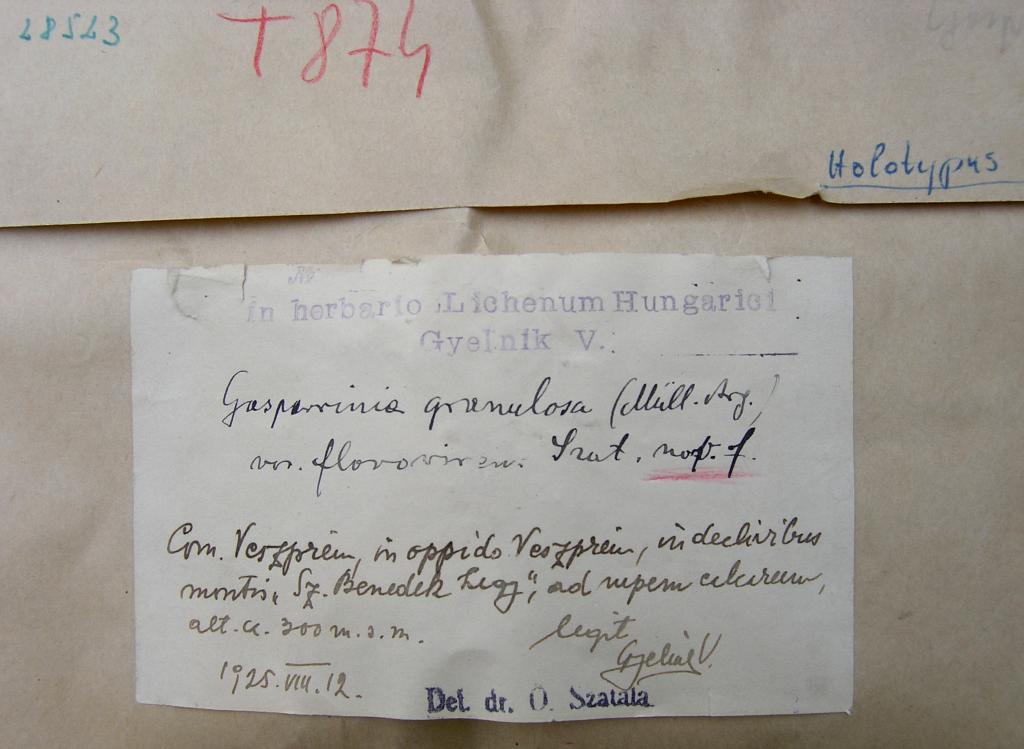 28523
T 874
Holotypus
In herbario Lichenum Hungarici
Gyelnik V.
Gasparrinia granulosa (Müll. Arg.)
var. flavovirens Szat. nov. f.
Com. Veszprém, in oppido Veszprém, in declivibus
montis „Sz. Benedek hegy", ad rupem calcaream,
alt. ca. 300 m. s. m.
legit
Gyelnik V.
1925. VIII. 12.
Det. dr. Ö. Szatala